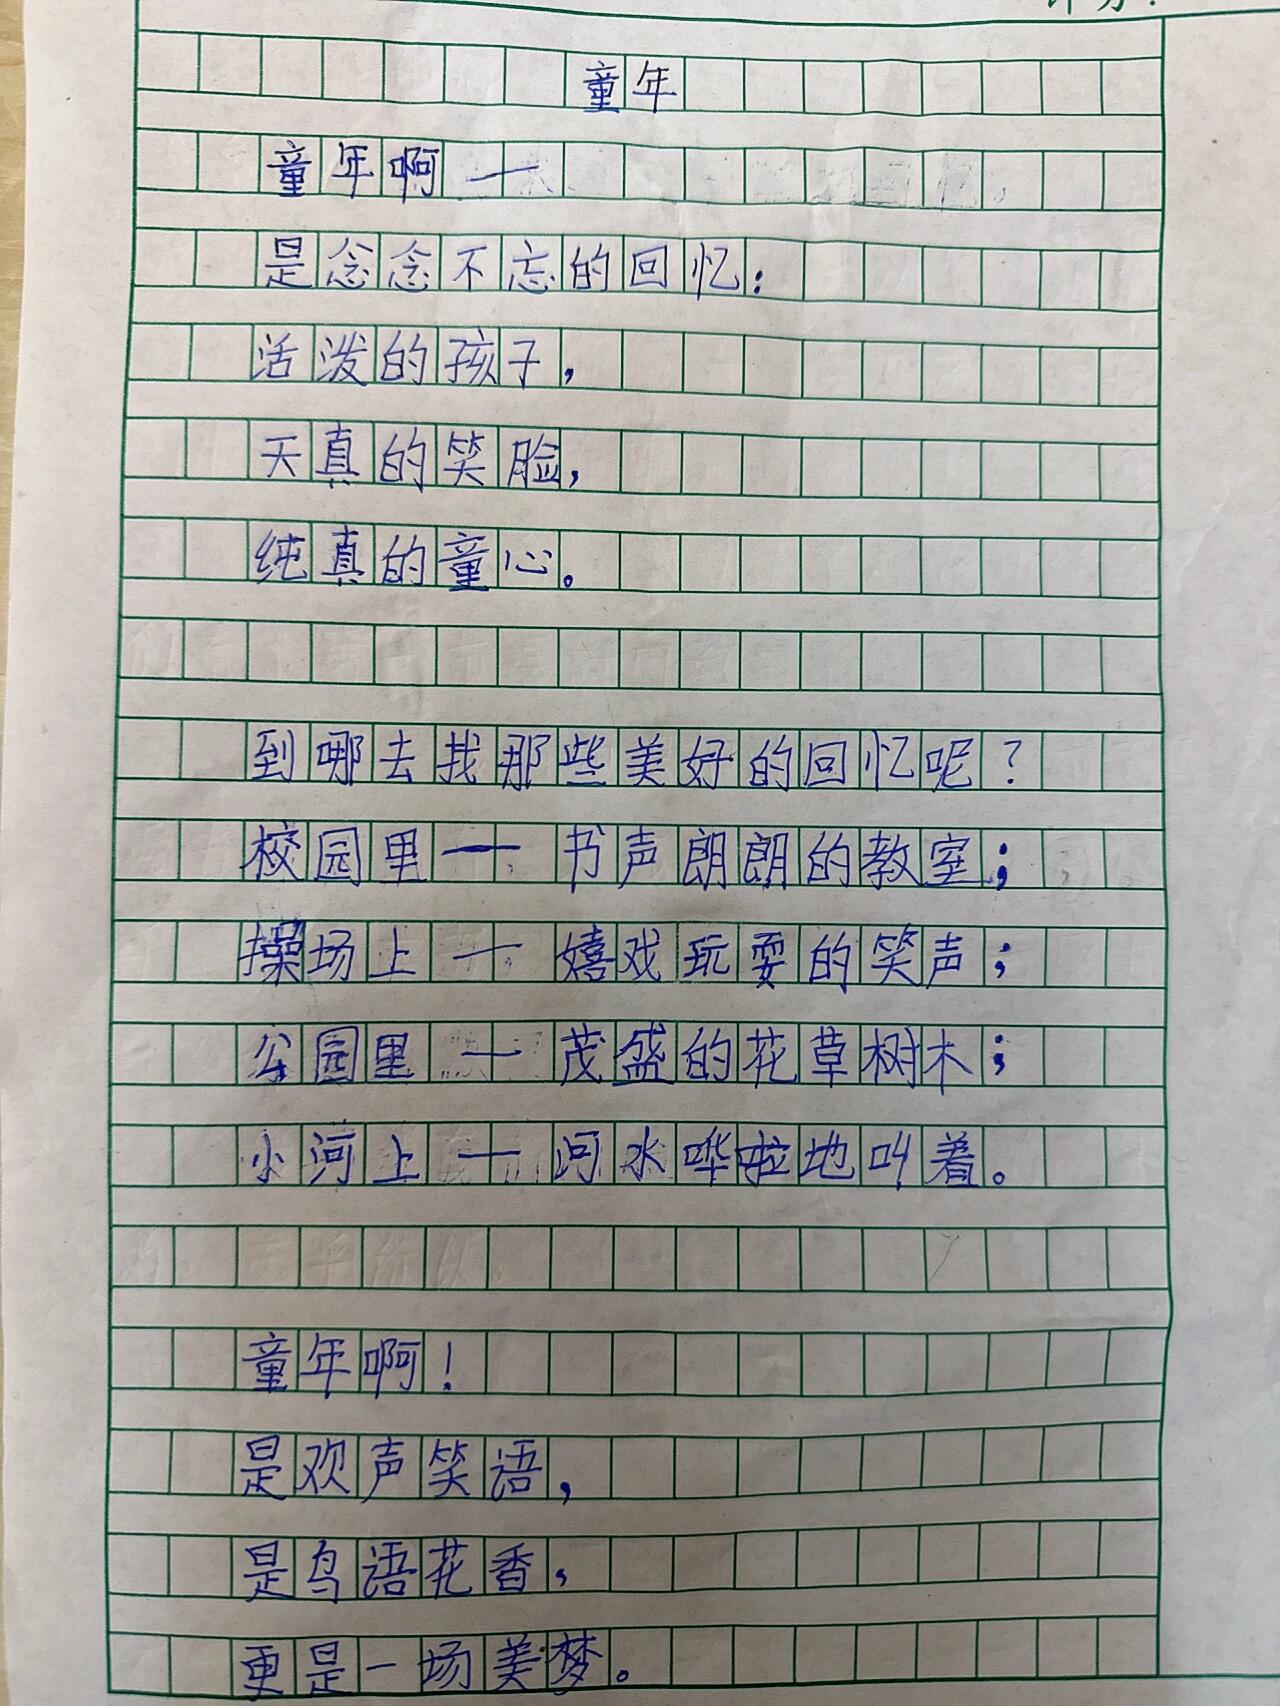 童年
童年啊——
是念念不忘的回忆：
活泼的孩子，
天真的笑脸，
纯真的童心。
到哪去找那些美好的回忆呢？
校园里——书声朗朗的教室；
操场上——嬉戏玩耍的笑声；
公园里——茂盛的花草树木；
小河上——河水哗啦地叫着。
童年啊！
是欢声笑语，
是鸟语花香，
更是一场美梦。